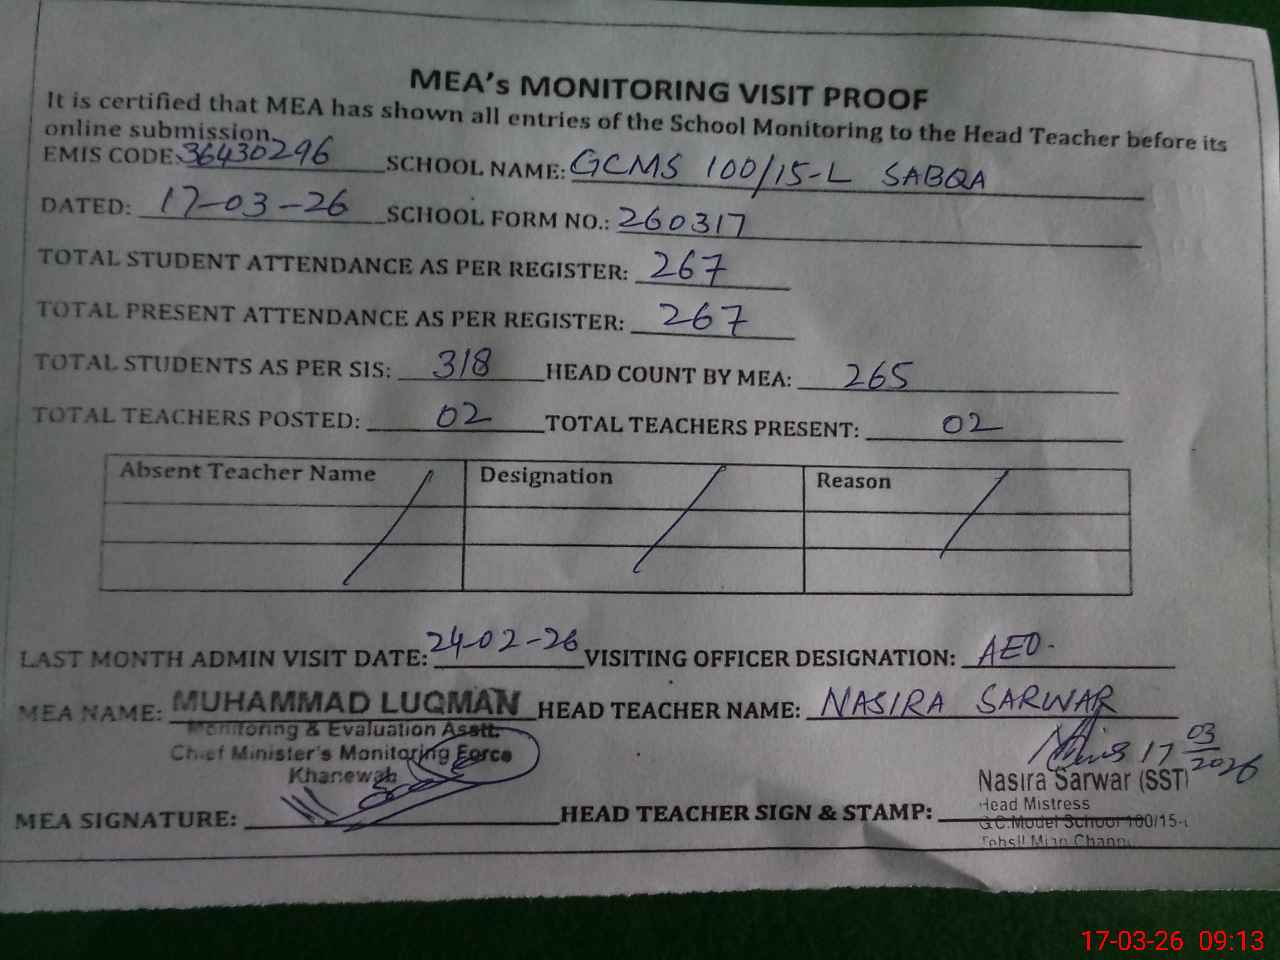 MEA's MONITORING VISIT PROOF
It is certified that MEA has shown all entries of the School Monitoring to the Head Teacher before its
online submission.
EMIS CODE: 36430296 SCHOOL NAME: GCMS 100/15-L SABQA
DATED: 17-03-26 SCHOOL FORM NO.: 260317
TOTAL STUDENT ATTENDANCE AS PER REGISTER: 267
TOTAL PRESENT ATTENDANCE AS PER REGISTER: 267
TOTAL STUDENTS AS PER SIS: 318 HEAD COUNT BY MEA: 265
TOTAL TEACHERS POSTED: 02 TOTAL TEACHERS PRESENT: 02
Absent Teacher Name Designation Reason
LAST MONTH ADMIN VISIT DATE: 24-02-26 VISITING OFFICER DESIGNATION: AEO.
MEA NAME: MUHAMMAD LUQMAN HEAD TEACHER NAME: NASIRA SARWAR
Monitoring & Evaluation Asstt.
Chief Minister's Monitoring Force
Khanewal
17 03/2026
Nasira Sarwar (SST)
Head Mistress
G.C.Model School 100/15-L
Tehsil Mian Channu
MEA SIGNATURE: HEAD TEACHER SIGN & STAMP:
17-03-26 09:13